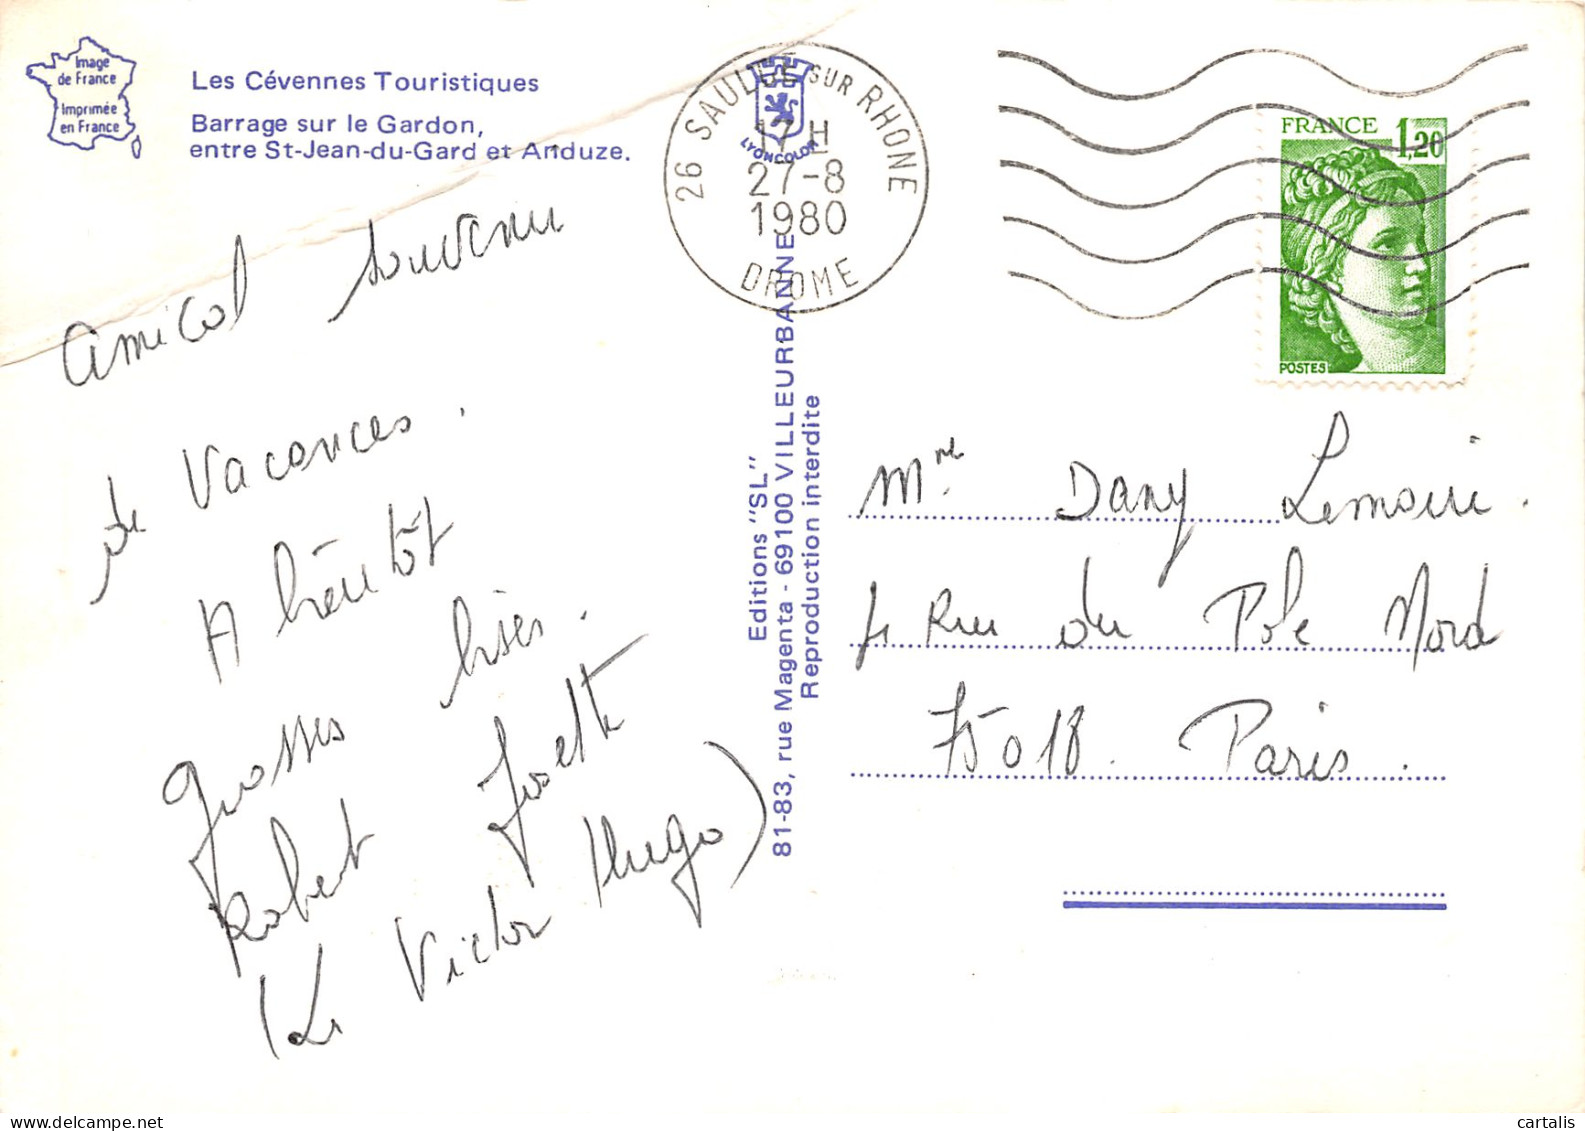 Image
de France
Imprimée
en France
Les Cévennes Touristiques
Barrage sur le Gardon,
entre St-Jean-du-Gard et Anduze.
26 SAULCE SUR RHONE
17 H
27-8
1980
DROME
LYONCOLOR
FRANCE 1,20
POSTES
Amical souvenir
de Vacances.
A bientôt
grosses bises.
Robert Joelle
(Le Victor Hugo)
Editions "SL"
81-83, rue Magenta - 69100 VILLEURBANNE
Reproduction interdite
Mme Dany Lemaire.
4 Rue du Pole Nord
75018. Paris.
cartalis